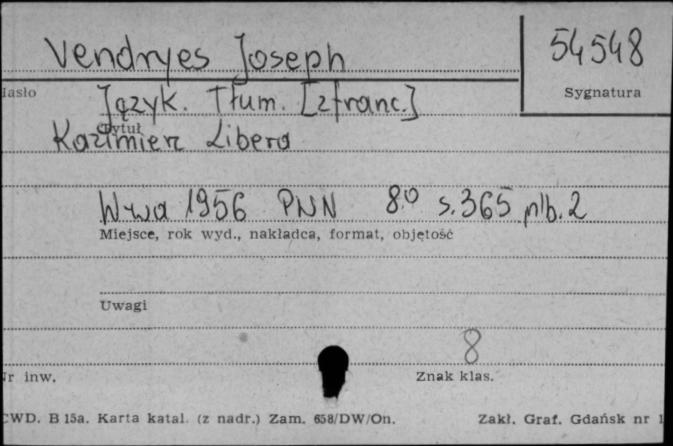 Vendryes Joseph
54548
Hasło
Sygnatura
Język. Tłum. [z franc.]
Tytuł
Kazimierz Libera
W-wa 1956 PWN 8° s. 365 nlb. 2
Miejsce, rok wyd., nakładca, format, objętość
Uwagi
8
Nr inw.
Znak klas.
CWD. B 15a. Karta katal. (z nadr.) Zam. 658/DW/On.
Zakł. Graf. Gdańsk nr 1